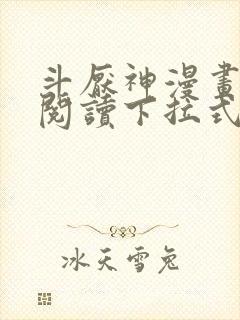 斗厭神漫畫
閱讀下拉式
冰天雪兔